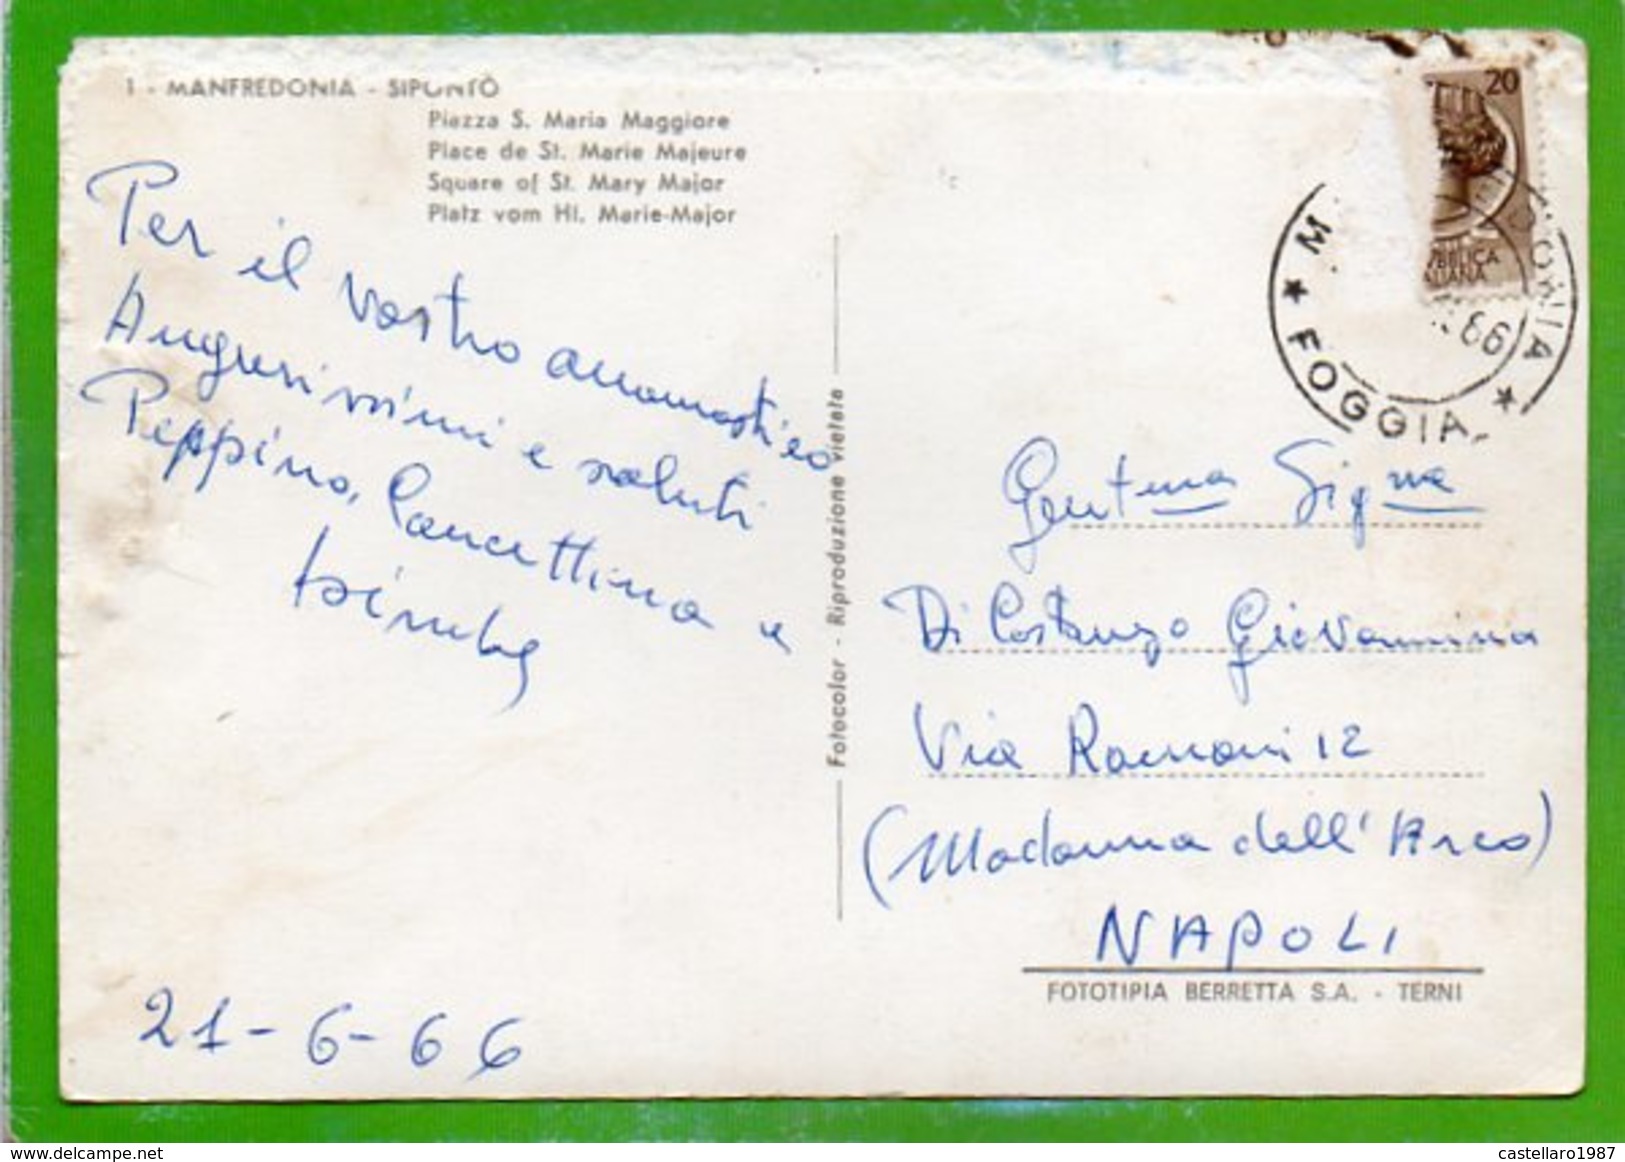 1 - MANFREDONIA - SIPONTO
Piazza S. Maria Maggiore
Place de St. Marie Majeure
Square of St. Mary Major
Platz vom Hl. Marie-Major
Per il vostro onomastico
Augurissimi e saluti
Peppino, Concettina e
21-6-66
Fotocolor - Riproduzione vietata
20
FOGGIA
66
Gent.ma Sig.na
Di Costanzo Giovannina
Via Romani 12
(Madonna dell'Arco)
NAPOLI
FOTOTIPIA BERRETTA S.A. - TERNI
delcampe.net
castellaro1987